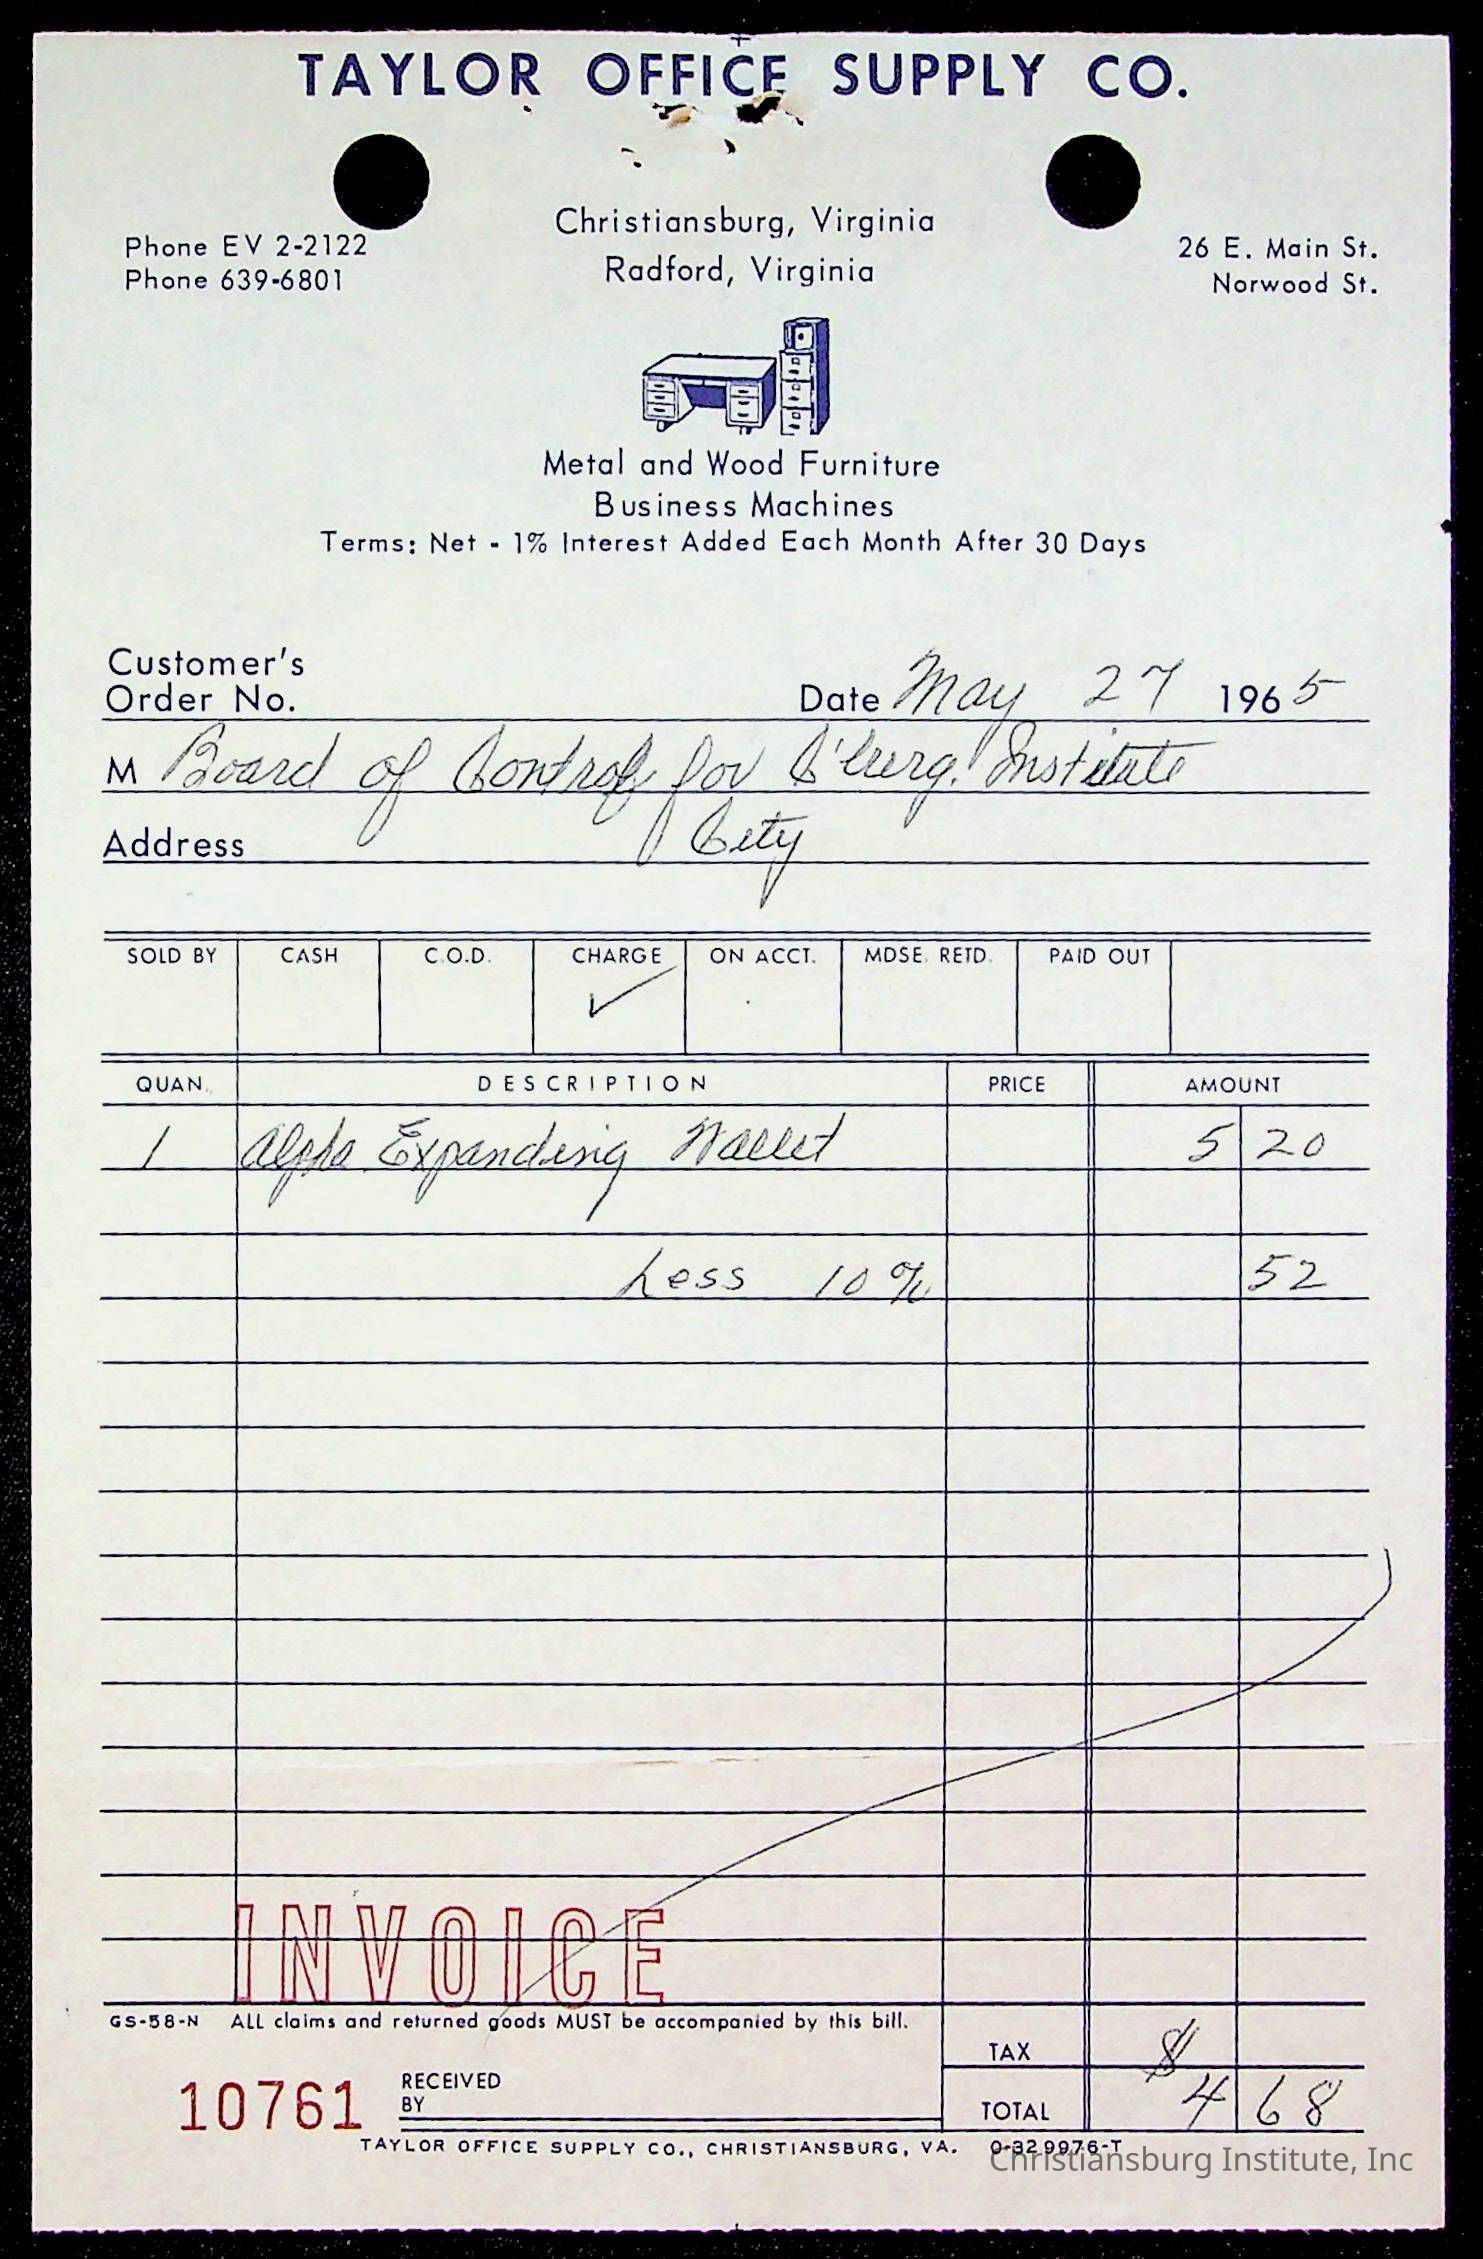 TAYLOR OFFICE SUPPLY CO.
Christiansburg, Virginia
Radford, Virginia
Phone EV 2-2122
Phone 639-6801
26 E. Main St.
Norwood St.
Metal and Wood Furniture
Business Machines
Terms: Net - 1% Interest Added Each Month After 30 Days
Customer's
Order No.
Date May 27 1965
M Board of Control for C'burg. Institute
Address City
SOLD BY CASH C.O.D. CHARGE ON ACCT. MDSE. RETD. PAID OUT
✓
QUAN. DESCRIPTION PRICE AMOUNT
1 Alpha Expanding Wallet 5 20
Less 10% 52
INVOICE
GS-58-N ALL claims and returned goods MUST be accompanied by this bill.
TAX
10761 RECEIVED
BY
TOTAL $4 68
TAYLOR OFFICE SUPPLY CO., CHRISTIANSBURG, VA. 0-329976-T
Christiansburg Institute, Inc